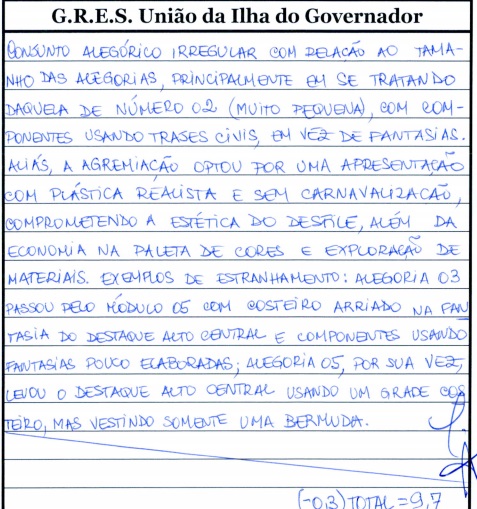 G.R.E.S. União da Ilha do Governador
CONJUNTO ALEGÓRICO IRREGULAR COM RELAÇÃO AO TAMA-
NHO DAS ALEGORIAS, PRINCIPALMENTE EM SE TRATANDO
DAQUELA DE NÚMERO 02 (MUITO PEQUENA), COM COM-
PONENTES USANDO TRAJES CIVIS, EM VEZ DE FANTASIAS.
ALIÁS, A AGREMIAÇÃO OPTOU POR UMA APRESENTAÇÃO
COM PLÁSTICA REALISTA E SEM CARNAVALIZAÇÃO,
COMPROMETENDO A ESTÉTICA DO DESFILE, ALÉM DA
ECONOMIA NA PALETA DE CORES E EXPLORAÇÃO DE
MATERIAIS. EXEMPLOS DE ESTRANHAMENTO: ALEGORIA 03
PASSOU PELO MÓDULO 05 COM COSTEIRO ARRIADO NA FAN
TASIA DO DESTAQUE ALTO CENTRAL E COMPONENTES USANDO
FANTASIAS POUCO ELABORADAS; ALEGORIA 05, POR SUA VEZ,
LEVOU O DESTAQUE ALTO CENTRAL USANDO UM GRADE COS
TEIRO, MAS VESTINDO SOMENTE UMA BERMUDA.
(-0,3) TOTAL = 9,7